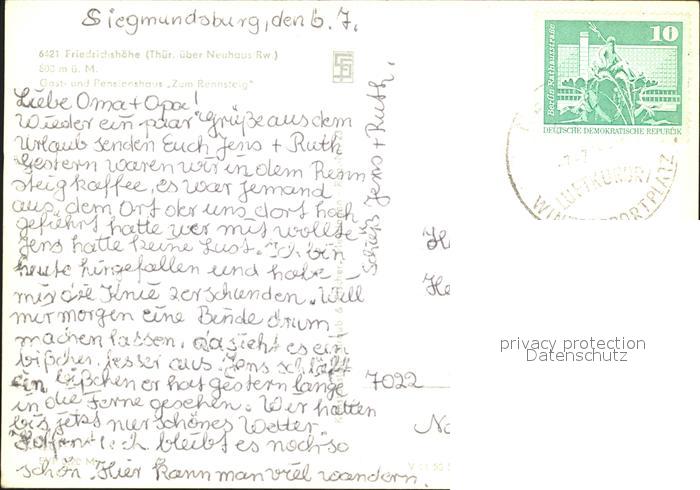 Siegmundsburg, den 6. 7.
6421 Friedrichshöhe (Thür. über Neuhaus Rw.)
800 m ü. M.
Gast- und Pensionshaus „Zum Rennsteig"
Liebe Oma + Opa!
Wieder ein paar Grüße aus dem
Urlaub senden Euch Jens + Ruth
Gestern waren wir in dem Renn
steigkaffee, es war jemand
aus dem Ort der uns dort hoch
geführt hatte wer mit wollte
Jens hatte keine Lust. Ich bin
heute hingefallen und habe
mir die Knie zerschunden. Will
mir morgen eine Binde drum
machen lassen, da sieht es ein
bißchen besser aus. Jens schläft
ein bißchen er hat gestern lange
in die Ferne gesehen. Wir hatten
bis jetzt nur schönes Wetter
bleibt es noch so
schön. Hier kann man viel wandern.
Jens + Ruth.
10
Berlin, Rathausstraße
DEUTSCHE DEMOKRATISCHE REPUBLIK
LUFTKURORT
WINTERSPORTPLATZ
7022
privacy protection
Datenschutz